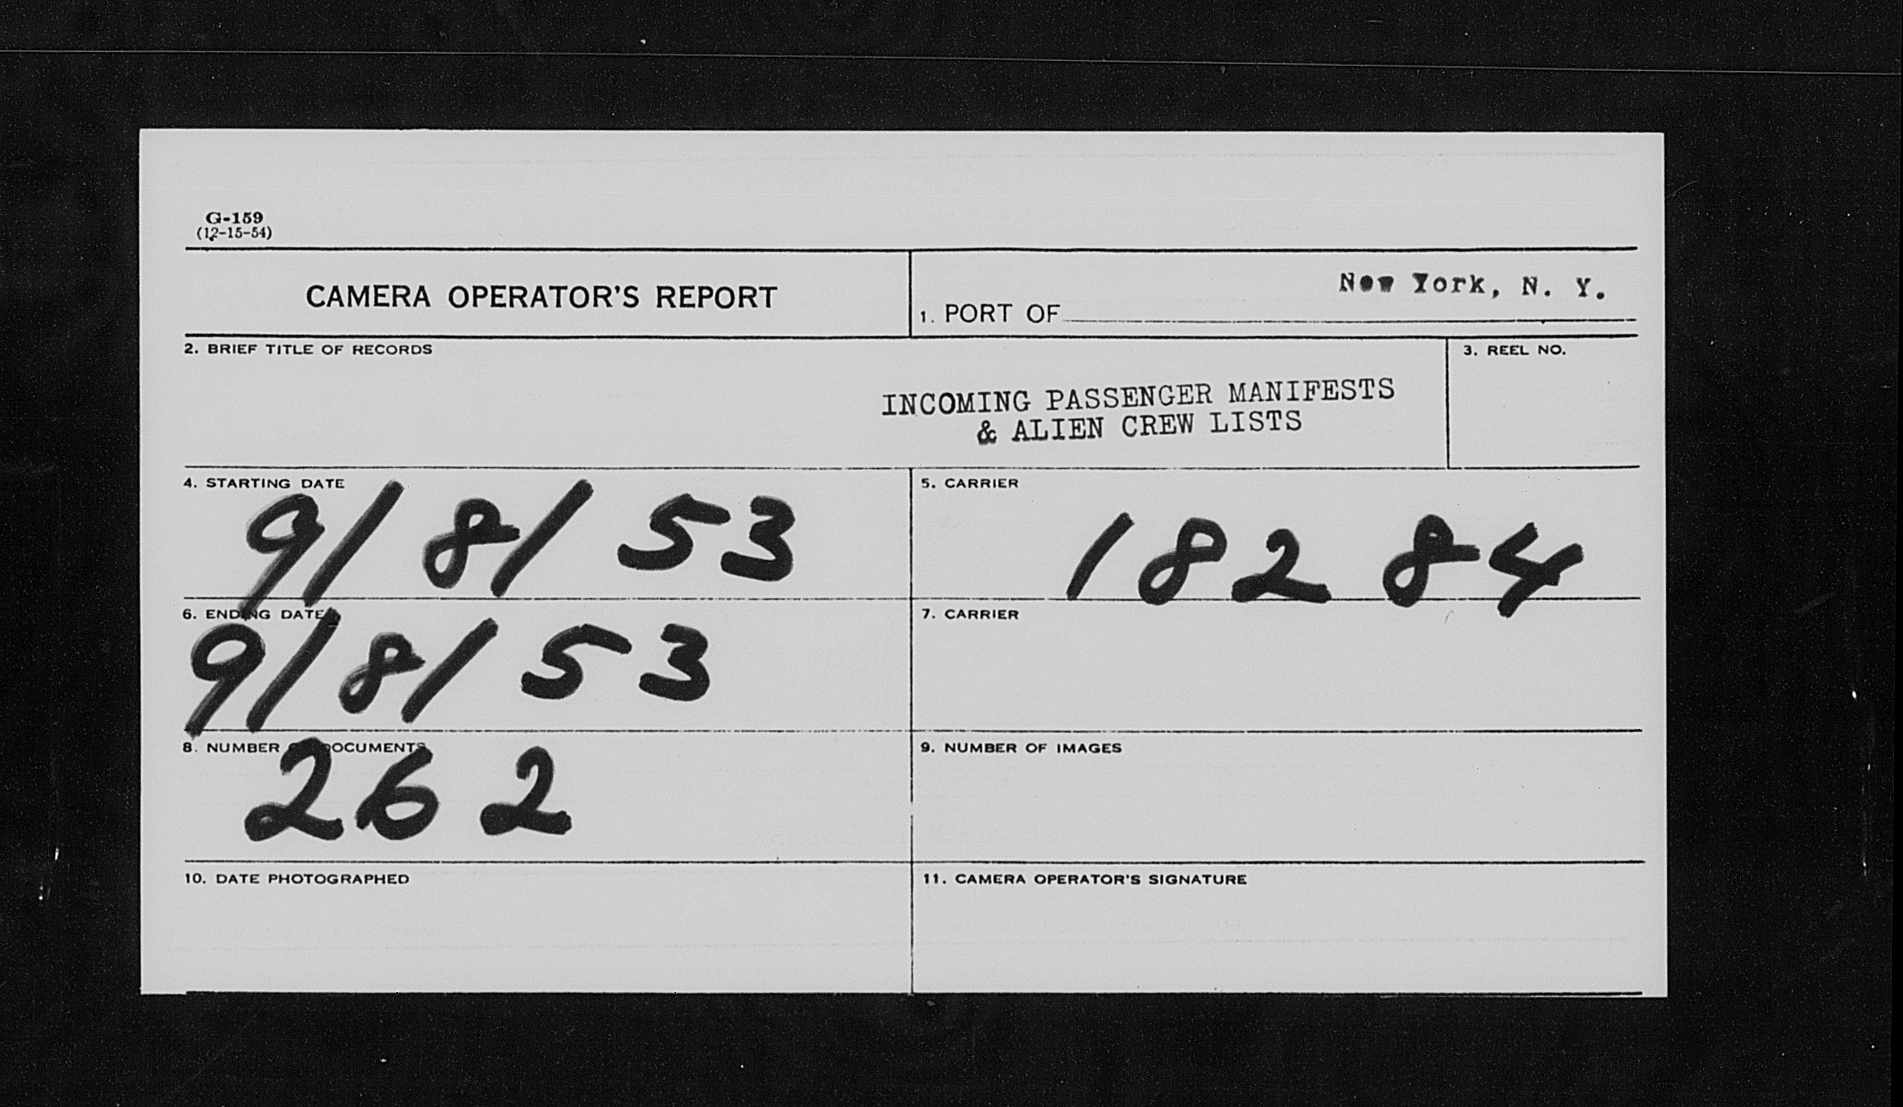 G-159
(12-15-54)
CAMERA OPERATOR'S REPORT
1. PORT OF New York, N. Y.
2. BRIEF TITLE OF RECORDS
3. REEL NO.
INCOMING PASSENGER MANIFESTS
& ALIEN CREW LISTS
4. STARTING DATE
9/8/53
5. CARRIER
18284
6. ENDING DATE
9/8/53
7. CARRIER
8. NUMBER OF DOCUMENTS
262
9. NUMBER OF IMAGES
10. DATE PHOTOGRAPHED
11. CAMERA OPERATOR'S SIGNATURE